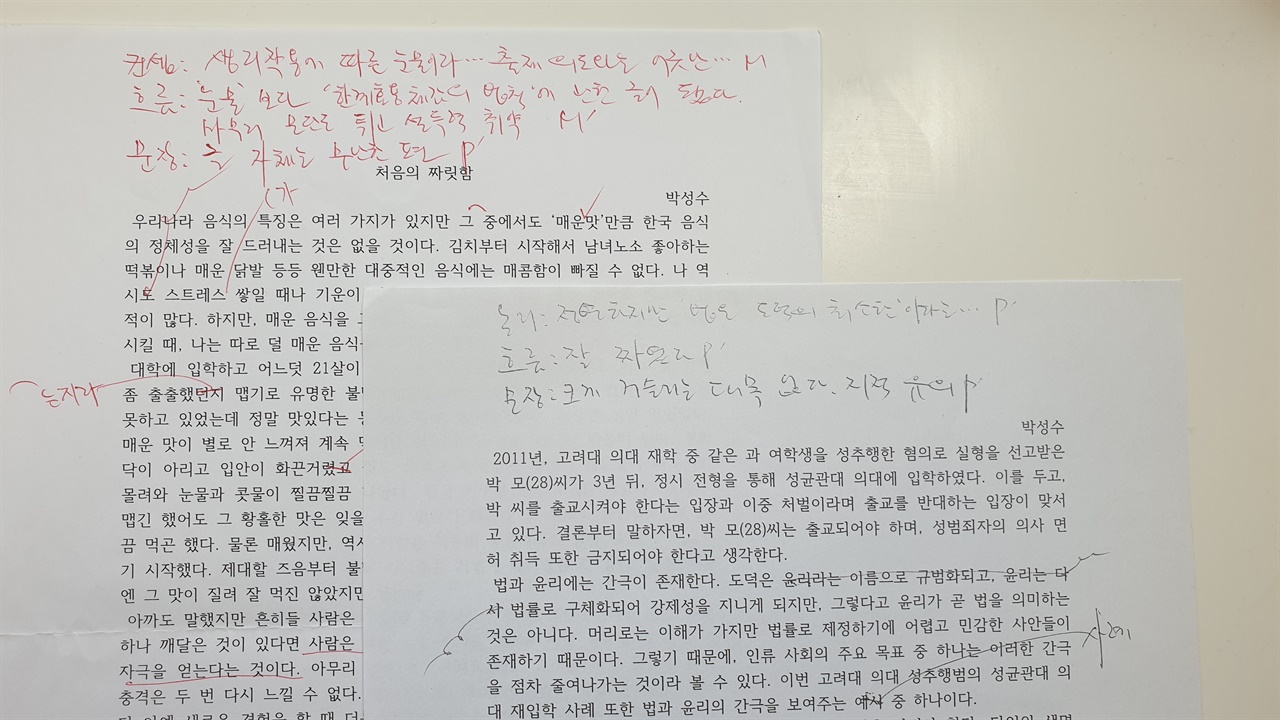 컨셉: 생리작용에 따른 눈물이라… 출제 의도와는 어긋난… M
흐름: '눈물' 보다 '한계효용체감의 법칙'에 난 글이 됐다.
마무리 문단도 튀고 설득력 취약 M'
문장: 글 자체는 무난한 편 P'
처음의 짜릿함
(가
박성수
우리나라 음식의 특징은 여러 가지가 있지만 그 중에서도 '매운맛'만큼 한국 음식
의 정체성을 잘 드러내는 것은 없을 것이다. 김치부터 시작해서 남녀노소 좋아하는
떡볶이나 매운 닭발 등등 웬만한 대중적인 음식에는 매콤함이 빠질 수 없다. 나 역
시도 스트레스 쌓일 때나 기운이
적이 많다. 하지만, 매운 음식을
시킬 때, 나는 따로 덜 매운 음식
대학에 입학하고 어느덧 21살이
좀 출출했던지 맵기로 유명한 불
는지라
못하고 있었는데 정말 맛있다는
매운 맛이 별로 안 느껴져 계속
닥이 아리고 입안이 화끈거렸고
몰려와 눈물과 콧물이 찔끔찔끔
맵긴 했어도 그 황홀한 맛은 잊을
끔 먹곤 했다. 물론 매웠지만, 역시
기 시작했다. 제대할 즈음부터 불
엔 그 맛이 질려 잘 먹진 않았지만
아까도 말했지만 흔히들 사람은
하나 깨달은 것이 있다면 사람은
자극을 얻는다는 것이다. 아무리
충격은 두 번 다시 느낄 수 없다.
논리: 전면하지만 '법은 도덕의 최소한'이라는… P'
흐름: 잘 짜였다 P'
문장: 크게 거슬리는 대목 없다. 지적 유의 P'
박성수
2011년, 고려대 의대 재학 중 같은 과 여학생을 성추행한 혐의로 실형을 선고받은
박 모(28)씨가 3년 뒤, 정시 전형을 통해 성균관대 의대에 입학하였다. 이를 두고,
박 씨를 출교시켜야 한다는 입장과 이중 처벌이라며 출교를 반대하는 입장이 맞서
고 있다. 결론부터 말하자면, 박 모(28)씨는 출교되어야 하며, 성범죄자의 의사 면
허 취득 또한 금지되어야 한다고 생각한다.
법과 윤리에는 간극이 존재한다. 도덕은 윤리라는 이름으로 규범화되고, 윤리는 다
시 법률로 구체화되어 강제성을 지니게 되지만, 그렇다고 윤리가 곧 법을 의미하는
것은 아니다. 머리로는 이해가 가지만 법률로 제정하기에 어렵고 민감한 사안들이
존재하기 때문이다. 그렇기 때문에, 인류 사회의 주요 목표 중 하나는 이러한 간극
사례
을 점차 줄여나가는 것이라 볼 수 있다. 이번 고려대 의대 성추행범의 성균관대 의
대 재입학 사례 또한 법과 윤리의 간극을 보여주는 예시 중 하나이다.